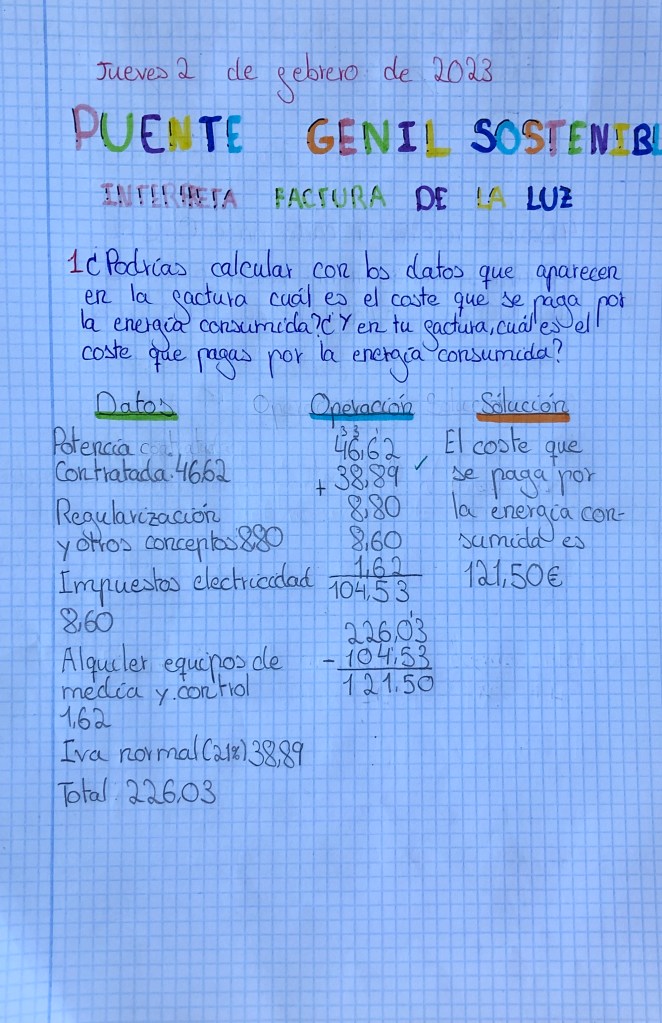 Jueves 2 de febrero de 2023
PUENTE GENIL SOSTENIBL
INTERPRETA FACTURA DE LA LUZ
1 ¿Podrías calcular con los datos que aparecen
en la factura cuál es el coste que se paga por
la energía consumida? ¿Y en tu factura, cuál es el
coste que pagas por la energía consumida?
Datos
Potencia
Contratada. 46,62
Regularización
y otros conceptos 8,80
Impuestos electricidad
8,60
Alquiler equipos de
media y control
1,62
Iva normal (21%) 38,89
Total 226,03
Operación
3 3 1
46,62
+ 38,89 ✓
8,80
8,60
1,62
104,53
226,03
- 104,53
121,50
Solución
El coste que
se paga por
la energía con-
sumida es
121,50€